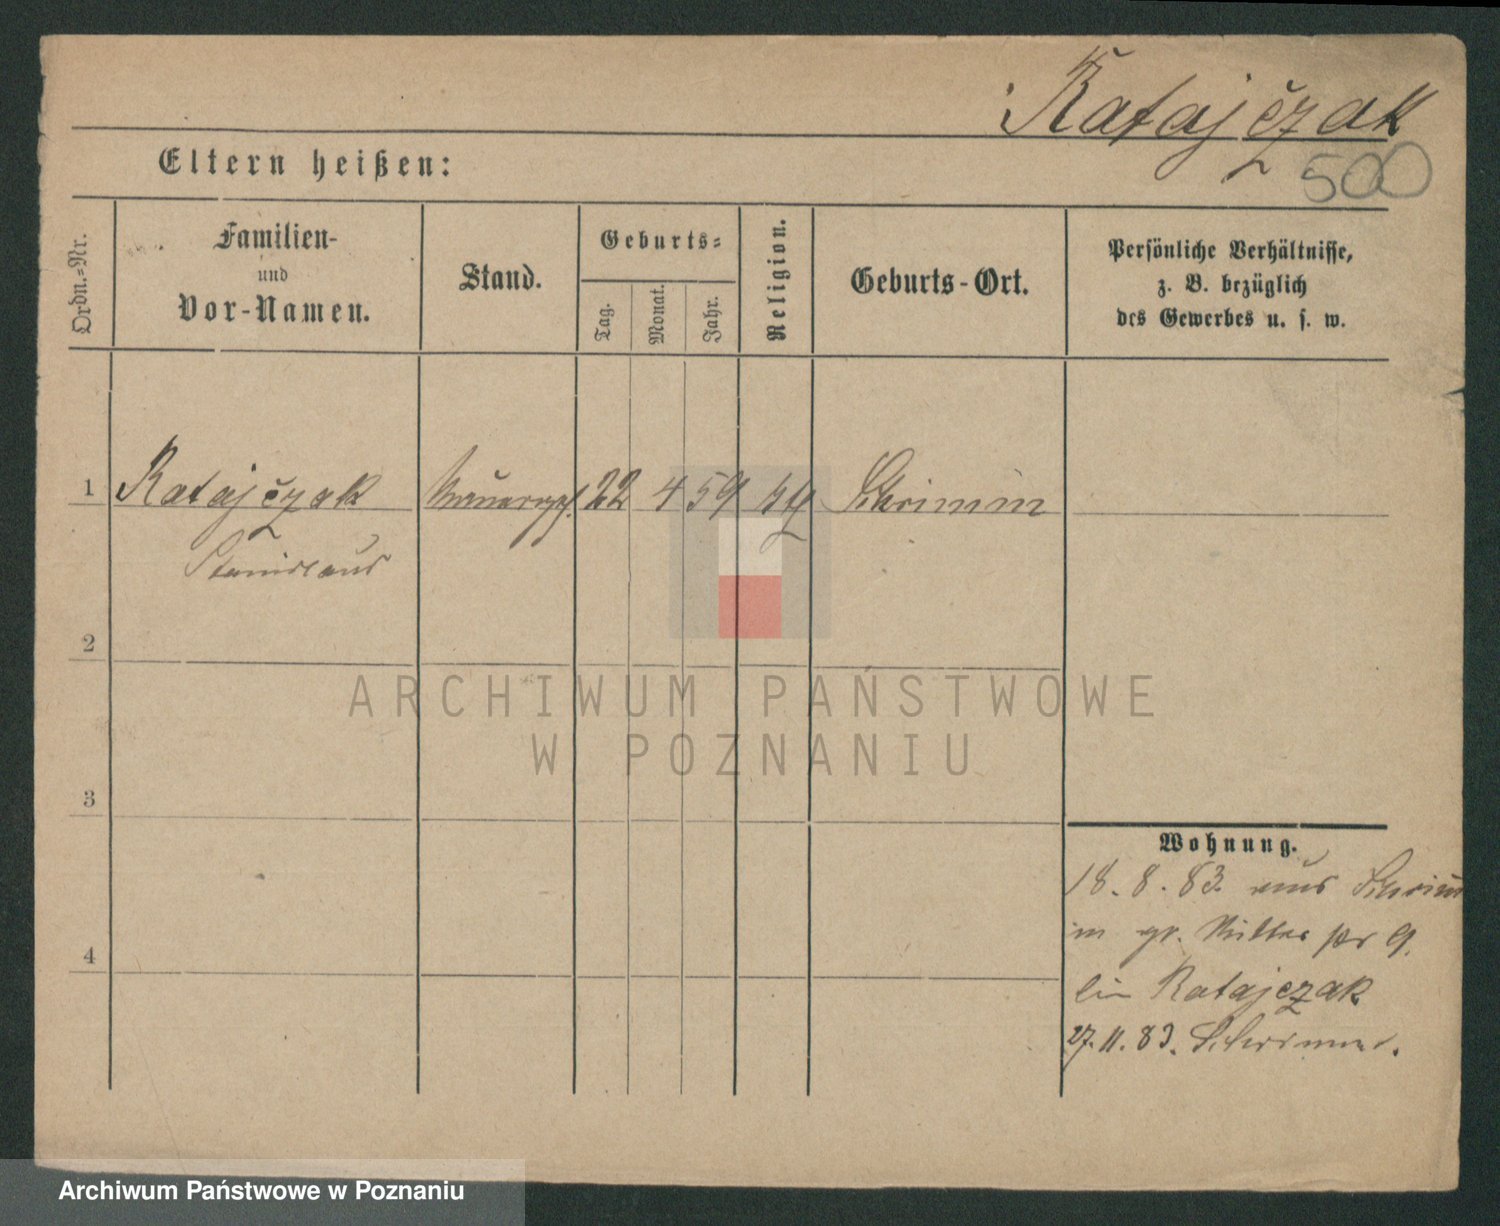 Ratajczak
500
Eltern heißen:
Ordn.-Nr.
Familien-
und
Vor-Namen.
Stand.
Geburts-
Tag.
Monat.
Jahr.
Religion.
Geburts-Ort.
Persönliche Verhältnisse,
z. B. bezüglich
des Gewerbes u. s. w.
1 Ratajczak 22 4 59 Schrimm
Stanislaus
2
ARCHIWUM PAŃSTWOWE
W POZNANIU
3
Wohnung.
18. 8. 83. aus Schrimm
gr. Ritter 9.
Ratajczak
27. 11. 83. Schrimm.
4
Archiwum Państwowe w Poznaniu